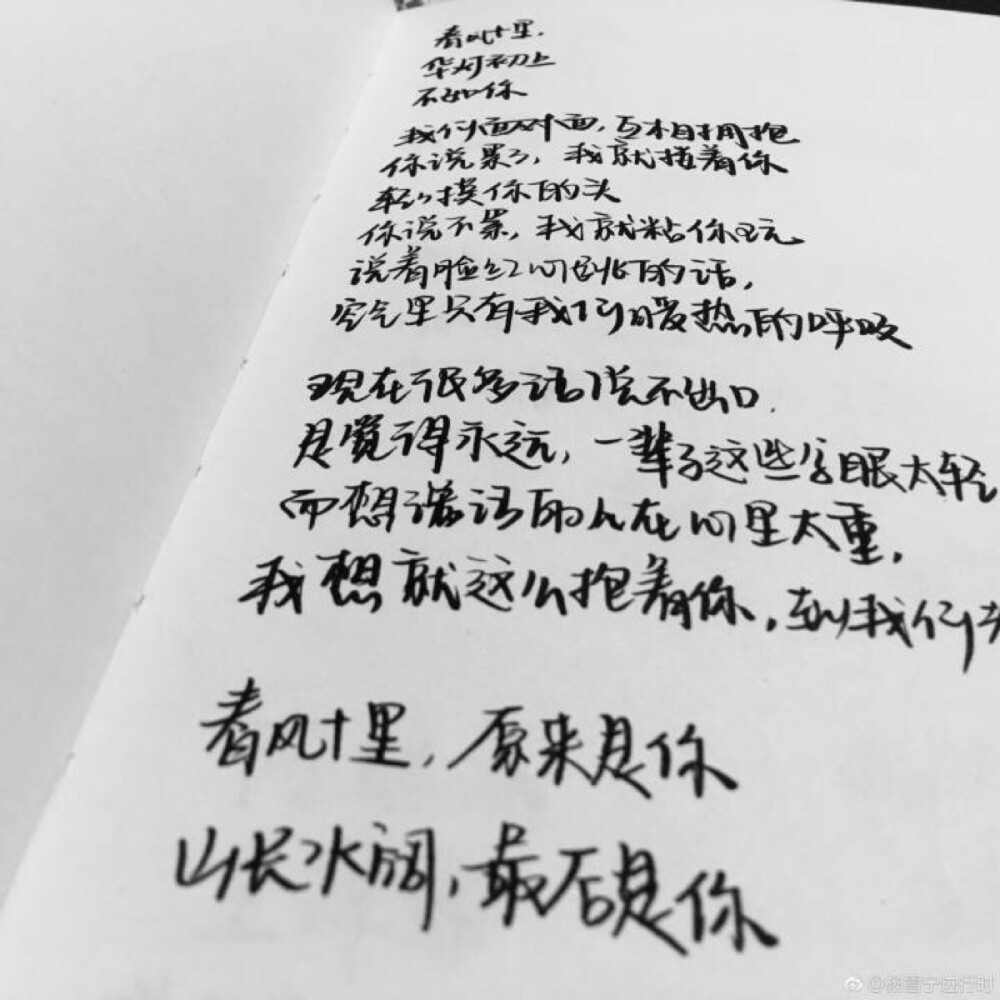 春风十里,
华灯初上
不如你
我们面对面,互相拥抱
你说累了,我就搂着你
轻轻摸你的头
你说不累,我就粘你玩
说着脸红心跳的话,
空气里只有我们暖热的呼吸
现在很多话说不出口.
是觉得永远,一辈子这些字眼太轻
而想说话的人在心里太重,
我想就这么抱着你,到我们
春风十里,原来是你
山长水阔,最后是你